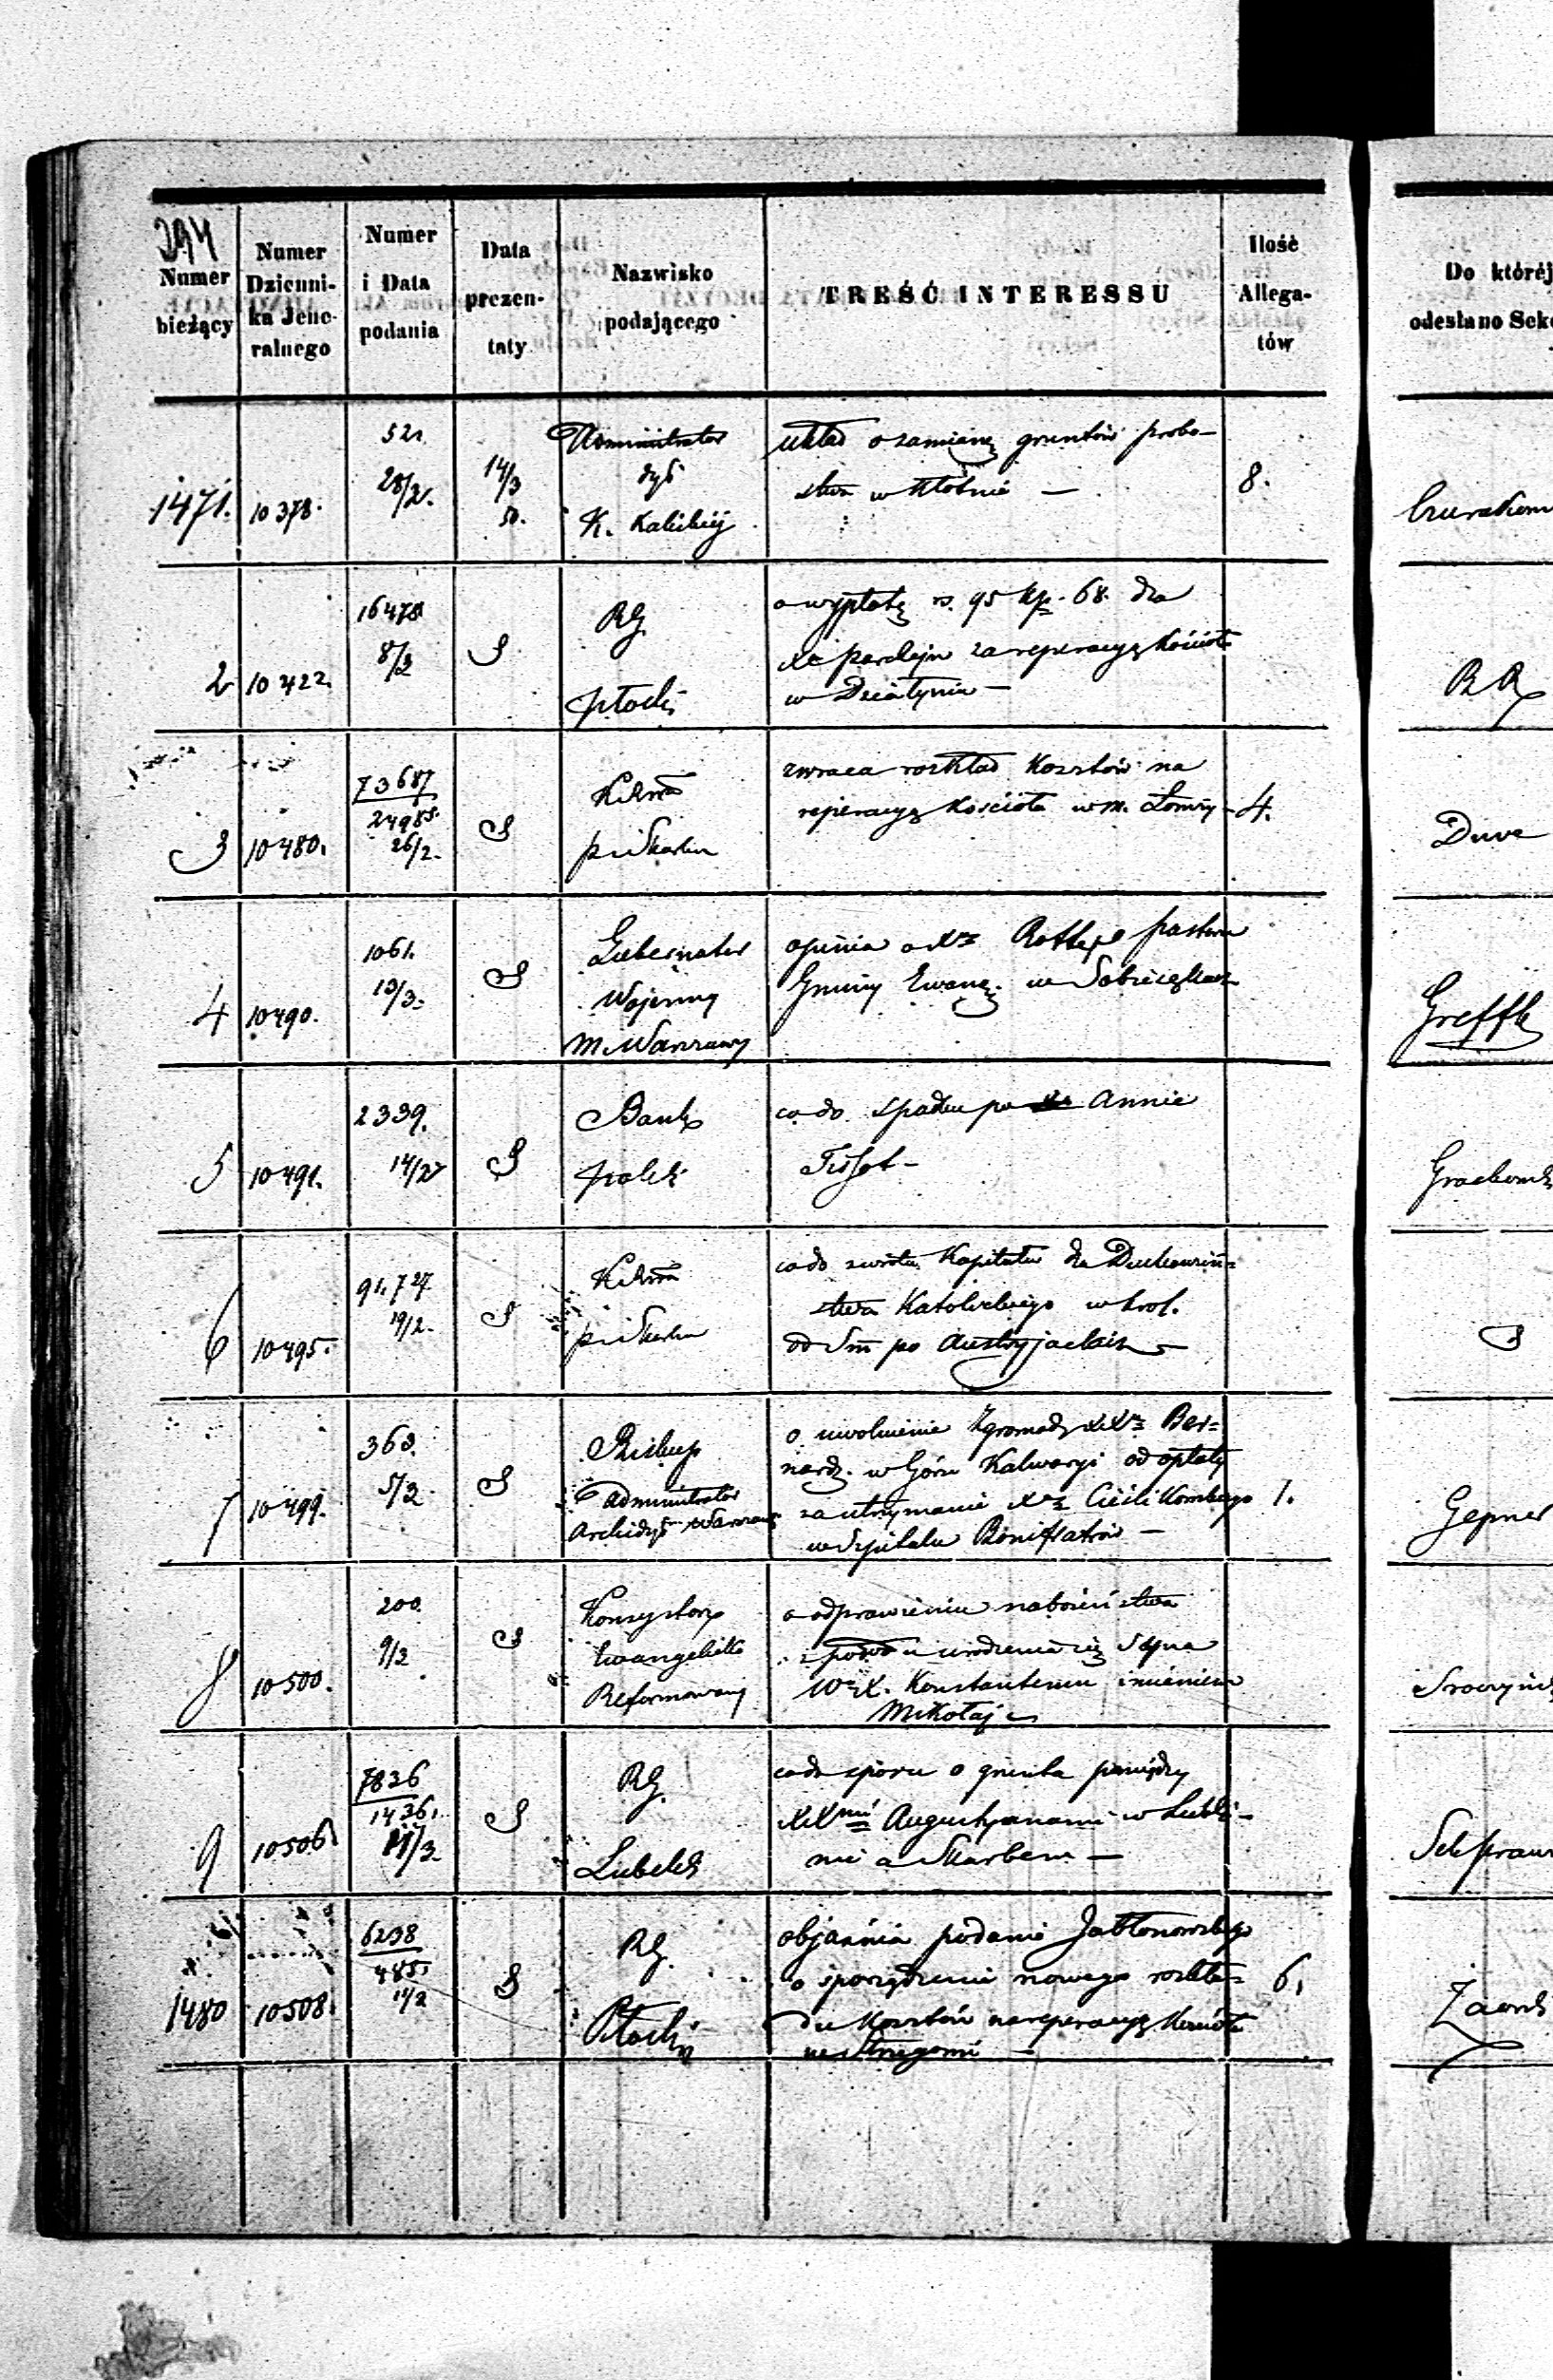 294
Numer bieżący
Numer Dzienni-ka Jene-ralnego
Numer i Data podania
Data prezen-taty
Nazwisko podającego
TREŚĆ INTERESSU
Ilość Allega-tów
Do któréj
odesłano Sek
1471. 10378. 521 28/2. 14/3 50. Administrator
dyś
K. Kaliskiéj
układ o zamianę gruntów probo-
stwa w Kłotnie —
8.
2 10422. 16478 8/3 S RG.
Płocki
o wypłatę rs. 95 kp. 68. dla
za reperacyą Kościoła
w Działyniu —
RR
3 10480. 73687
24985. 26/2. S KRPrw
p i Skarbu
zwraca rozkład Kosztów na
reperacyą Kościoła w m. Łomży —
4.
Duve
4 10490. 1061. 13/3. S Gubernator
Wojenny
m. Warszawy
opinia o Xz pastora
Gminy Ewang.
Greffk
5 10491. 2339. 14/2 S Bank
polski
co do spadku po Annie
Tissot —
6 10495. 91.727 19/2. S
p i Skarbu
co do zwrotu Kapitału dla Duchowień=
stwa Katolickiego w Król.
od Sm po Austryjackich —
S
7 10499. 363. 5/3 S Biskup
Administrator
Archidyś Warszaws
o uwolnienie Zgromadz XXz Ber=
nard. w Górze Kalwaryi od opłaty
za utrzymanie Xz
w Szpitalu Bonifratrów —
1.
Gepner
8 10500. 200. 9/3 S Konsystorz
Ewangelicko
Reformowany
o odprawieniu nabożeństwa
z powodu urodzenia się Syna
WXX. Konstantemu imieniem
Mikołaj
9 10506 7836
1436. 11/3 S RG.
Lubelski
co do sporu o grunta pomiędzy
XXmi Augustyanami w Lubli-
nie a Skarbem —
1480 10508. 6238
485. 11/3 S RG.
Płocki
objaśnia podanie Jabłonowskiego
o sporządzenie nowego rozkła=
du Kosztów na reperacyą Kościoła
w Strzegowie —
6.